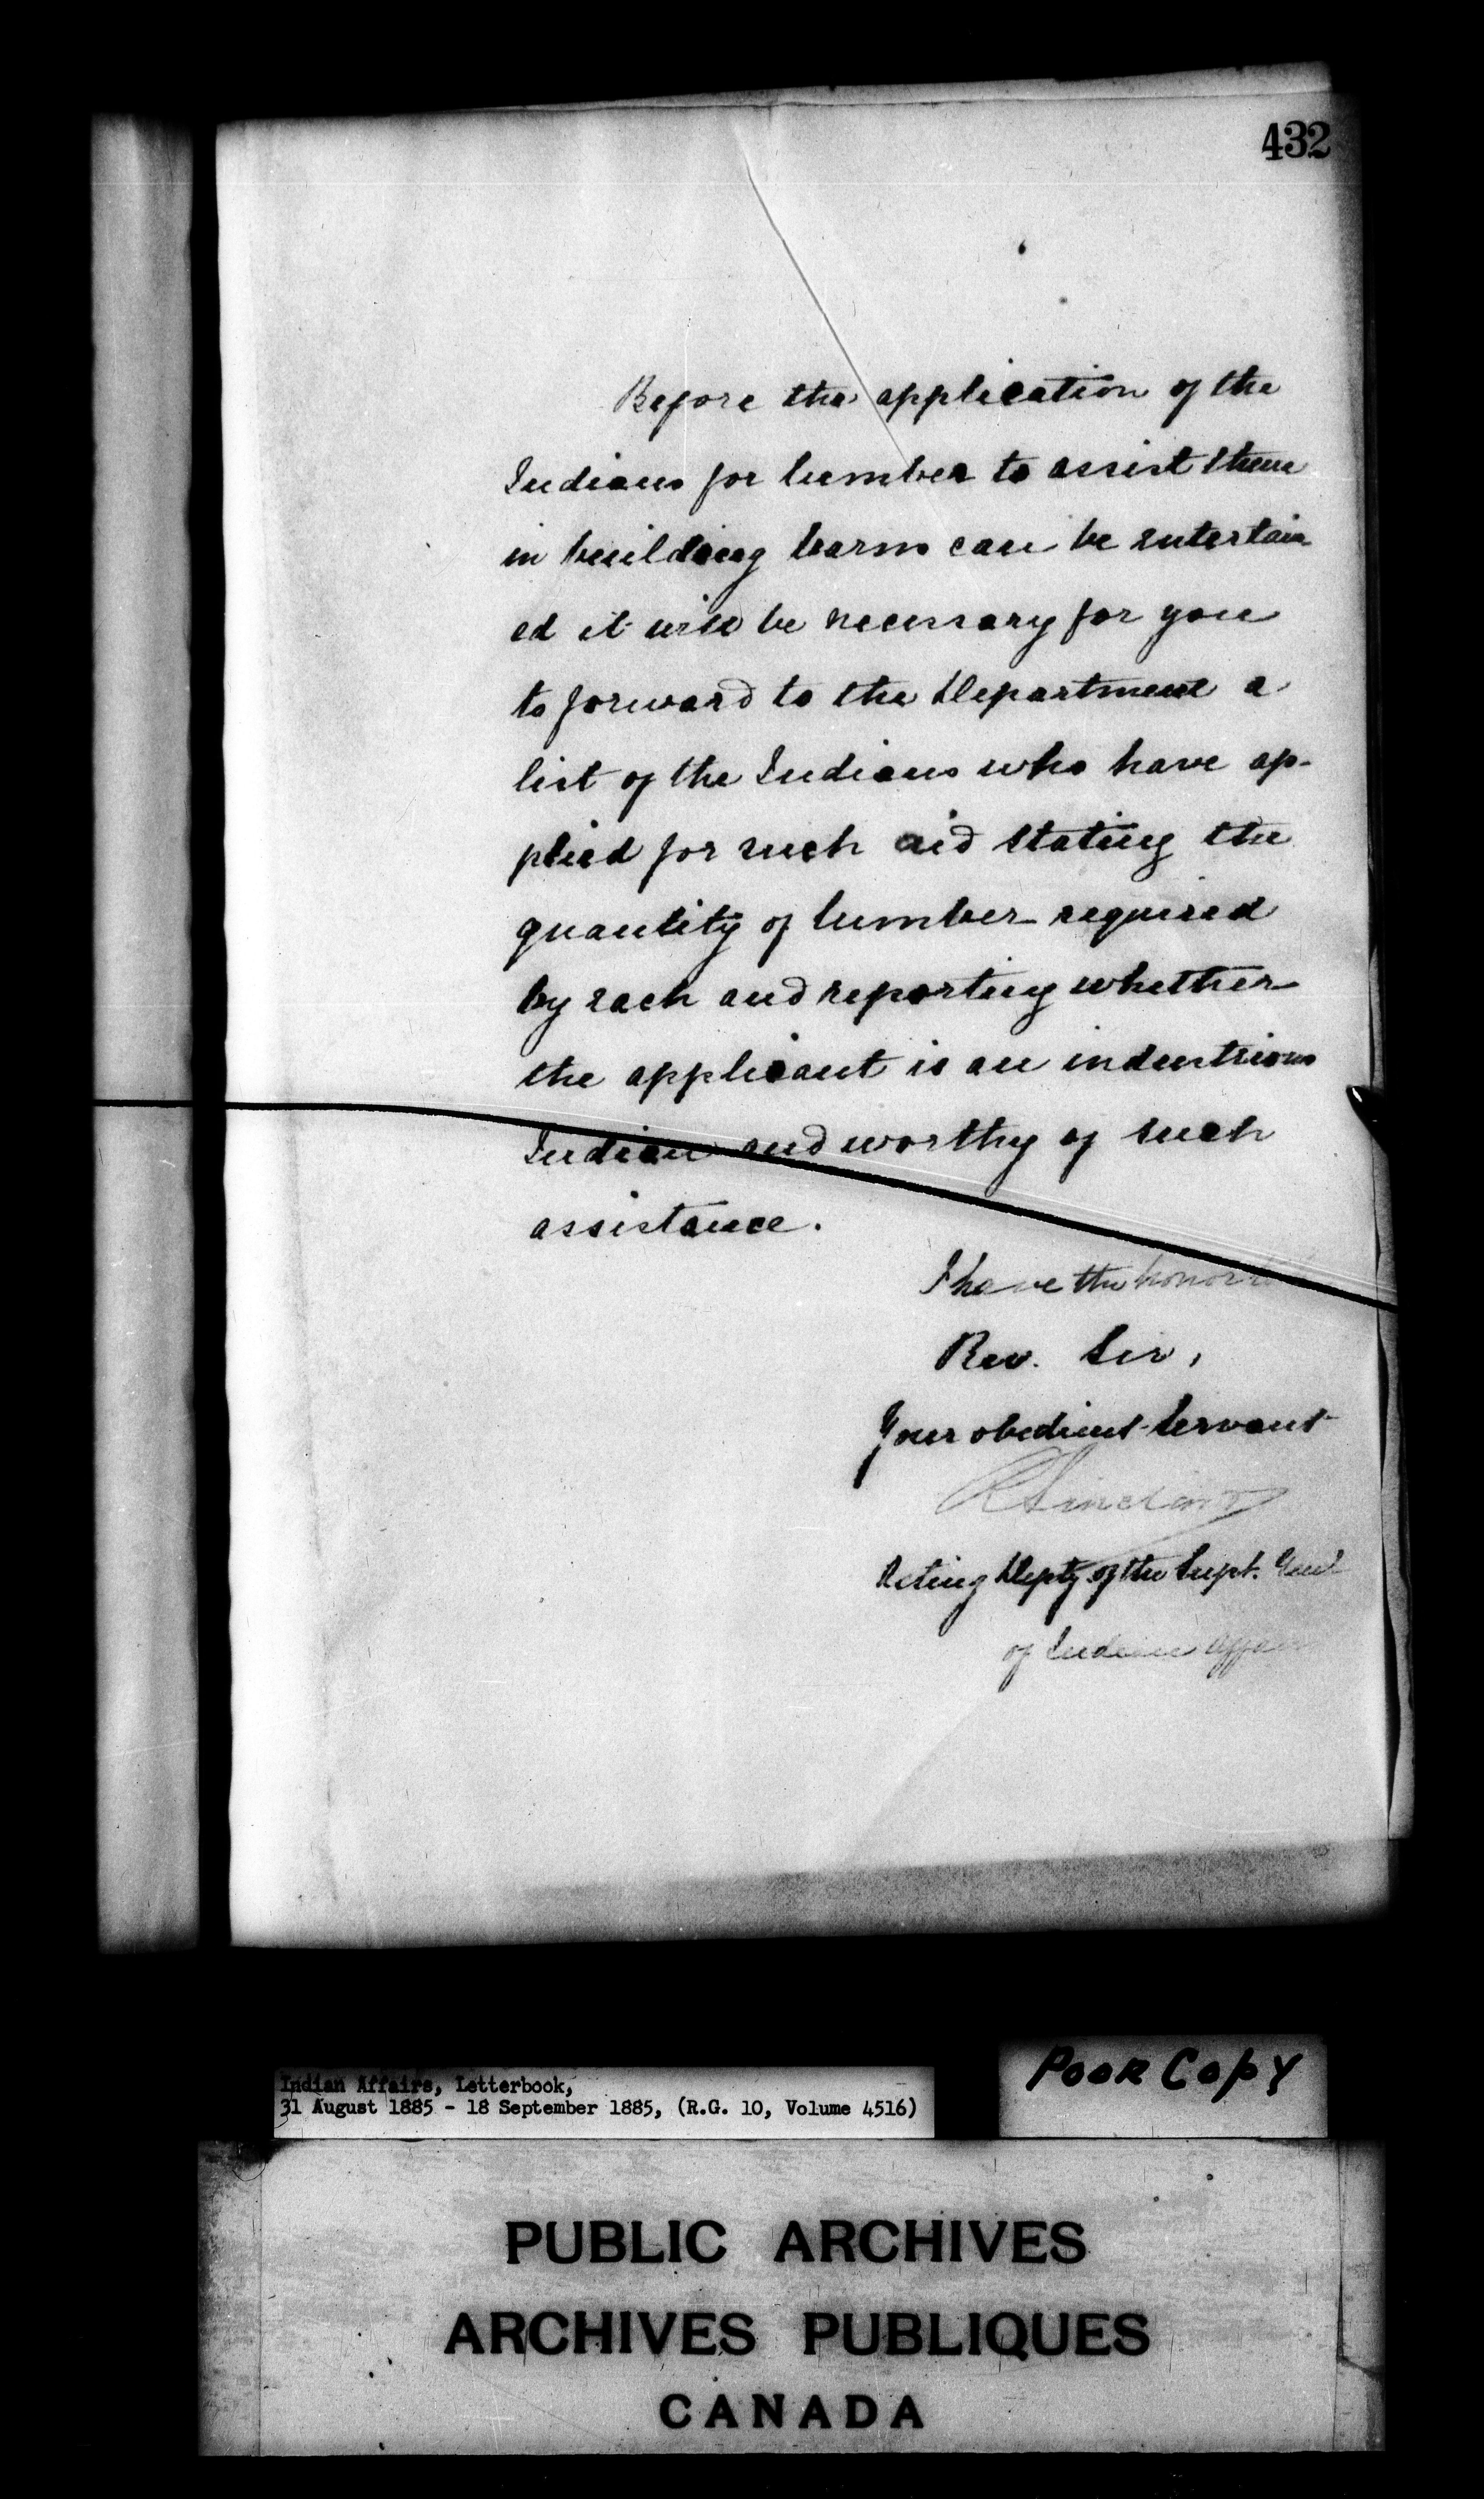 432
Before the application of the
Indians for lumber to assist them
in building barns can be entertain
ed it will be necessary for you
to forward to the Department a
list of the Indians who have ap-
plied for such aid stating the
quantity of lumber required
by each and reporting whether
the applicant is an industrious
Indian and worthy of such
assistance.
I have the honor to
Rev. Sir,
Your obedient Servant
R Sinclair
Acting Depty of the Supt. Genl
of Indian Affairs
Poor Copy
Indian Affairs, Letterbook,
31 August 1885 - 18 September 1885, (R.G. 10, Volume 4516)
PUBLIC ARCHIVES
ARCHIVES PUBLIQUES
CANADA